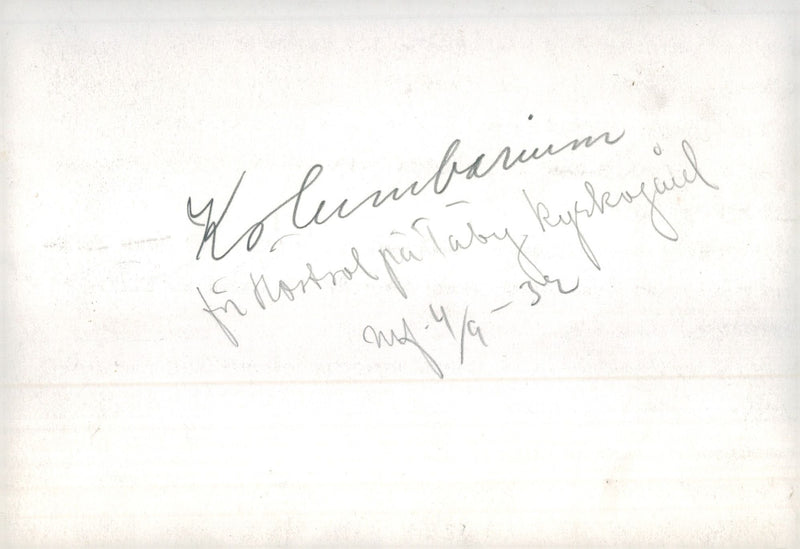 Kolumbarium
för Höstsol på Täby kyrkogård
4/9 - 32